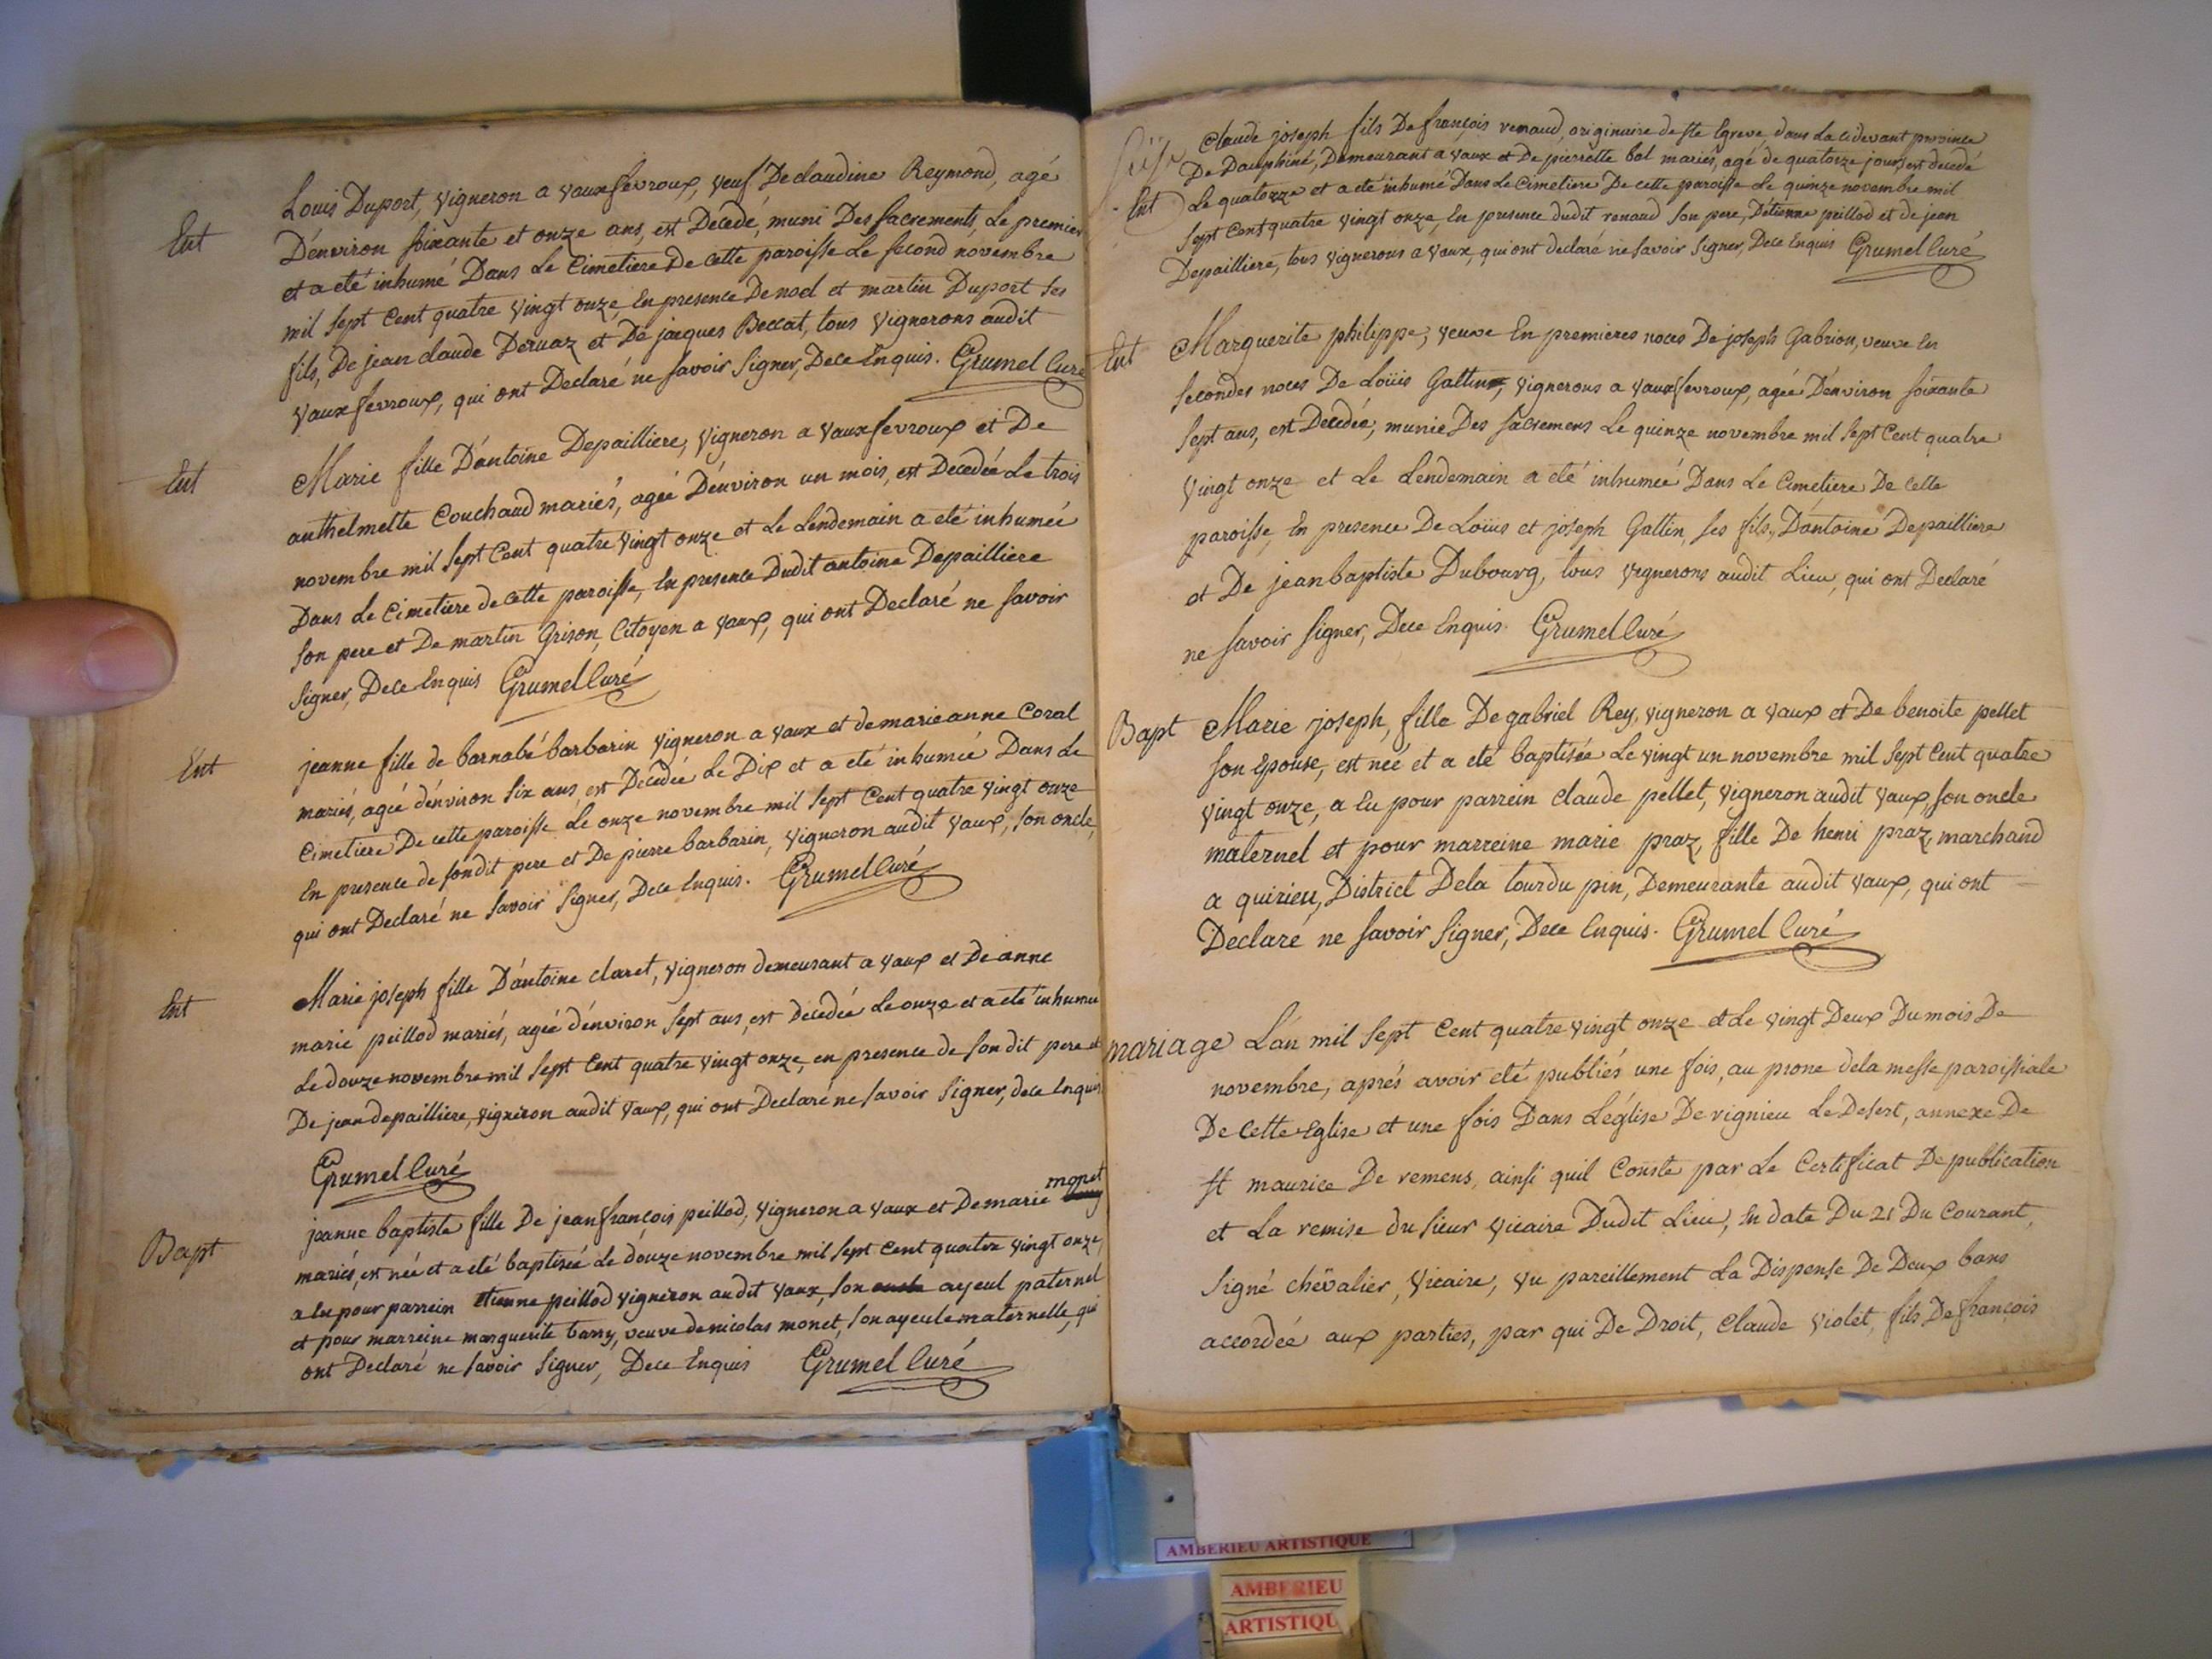 Ent
Louis Duport, vigneron a vauxfevroux, veuf De claudine Reymond, agé
D'environ soixante et onze ans, est Decedé, muni Des sacrements, Le premier
et a eté inhumé Dans Le Cimetiere De cette paroisse Le second novembre
mil sept Cent quatre vingt onze, En presence De noel et martin Duport ses
fils, De jean claude Dervaz et De jacques Beccat, tous vignerons audit
vauxfevroux, qui ont Declaré ne savoir signer, Dece Enquis. Grumel Curé
Ent
Marie fille D'antoine Depailliere, vigneron a vauxfevroux et De
anthelmette Couchaud mariés, ageé D'environ un mois, est Decedée Le trois
novembre mil sept Cent quatre vingt onze et Le Lendemain a eté inhumée
Dans Le Cimetiere de cette paroisse, En presence Dudit antoine Depailliere
son pere et De martin Grison, Citoyen a vaux, qui ont Declaré ne savoir
signer, Dece Enquis Grumel Curé
Ent
jeanne fille de barnabé barbarin vigneron a vaux et de marieanne Coral
mariés, ageé d'environ six ans est Decedée Le Dix et a eté inhumée Dans Le
Cimetiere De cette paroisse Le onze novembre mil sept Cent quatre vingt onze
En presence de sondit pere et De pierre barbarin, vigneron audit vaux, son oncle,
qui ont Declaré ne savoir signer, Dece Enquis. Grumel Curé
Ent
Marie joseph fille D'antoine claret, vigneron demeurant a vaux et De anne
marie peillod mariés, ageé d'environ sept ans, est decedée Le onze et a eté inhumée
Le douze novembre mil sept Cent quatre vingt onze, en presence de son dit pere et
De jean depailliere, vigneron audit vaux, qui ont Declaré ne savoir signer, dece Enquis
Grumel Curé
Bapt
monet
jeanne baptiste fille De jeanfrançois peillod, vigneron a vaux et De marie
mariés, est née et a eté baptisée Le douze novembre mil sept Cent quatre vingt onze,
a Eu pour parrein etienne peillod vigneron audit vaux, son oncle ayeul paternel
et pour marreine marguerite tamy, veuve de nicolas monet, son ayeule maternelle, qui
ont Declaré ne savoir signer, Dece Enquis Grumel Curé
Claude joseph fils De françois renaud, originaire de Ste Egreve dans La cidevant province
De Dauphiné, Demeurant a vaux et De pierrette bal mariés, agé de quatorze jours, est decedé
Ent
Le quatorze et a eté inhumé Dans Le Cimetiere De cette paroisse Le quinze novembre mil
sept Cent quatre vingt onze, En presence dudit renaud son pere, D'etienne peillod et de jean
Depailliere, tous vignerons a vaux, qui ont declaré ne savoir signer, Dece Enquis Grumel Curé
Ent
Marguerite philippe, veuve En premieres noces De joseph Gabrion, veuve En
secondes noces De Loüis Gattin, vignerons a vauxfevroux, ageé D'environ soixante
sept ans, est Decedée, munie Des sacremens Le quinze novembre mil sept Cent quatre
vingt onze et Le Lendemain a eté inhumée Dans Le Cimetiere De cette
paroisse, En presence De Loüis et joseph Gattin, ses fils, D'antoine Depailliere
et De jeanbaptiste Dubourg, tous vignerons audit Lieu, qui ont Declaré
ne savoir signer, Dece Enquis. Grumel Curé
Bapt
Marie joseph, fille De gabriel Rey, vigneron a vaux et De benoite pellet
son Epouse, est née et a eté baptisée Le vingt un novembre mil sept Cent quatre
vingt onze, a Eu pour parrein claude pellet, vigneron audit vaux, son oncle
maternel et pour marreine marie praz, fille De henri praz, marchand
a quirieu, District Dela tour du pin, Demeurante audit vaux, qui ont
Declaré ne savoir signer, Dece Enquis. Grumel Curé
mariage
L'an mil sept Cent quatre vingt onze et Le vingt Deux Du mois De
novembre, aprés avoir eté publiés une fois, au prone dela messe paroissiale
De cette Eglise et une fois Dans L'église De vignieu Le Desert, annexe De
St maurice De remens, ainsi quil Conste par Le Certificat De publication
et La remise du sieur vicaire Dudit Lieu, En date Du 21 Du Courant,
signé chevalier, vicaire, vu pareillement La Dispense De Deux bans
accordée aux parties, par qui De Droit, Claude violet, fils De françois
AMBERIEU ARTISTIQUE
AMBERIEU
ARTISTIQU